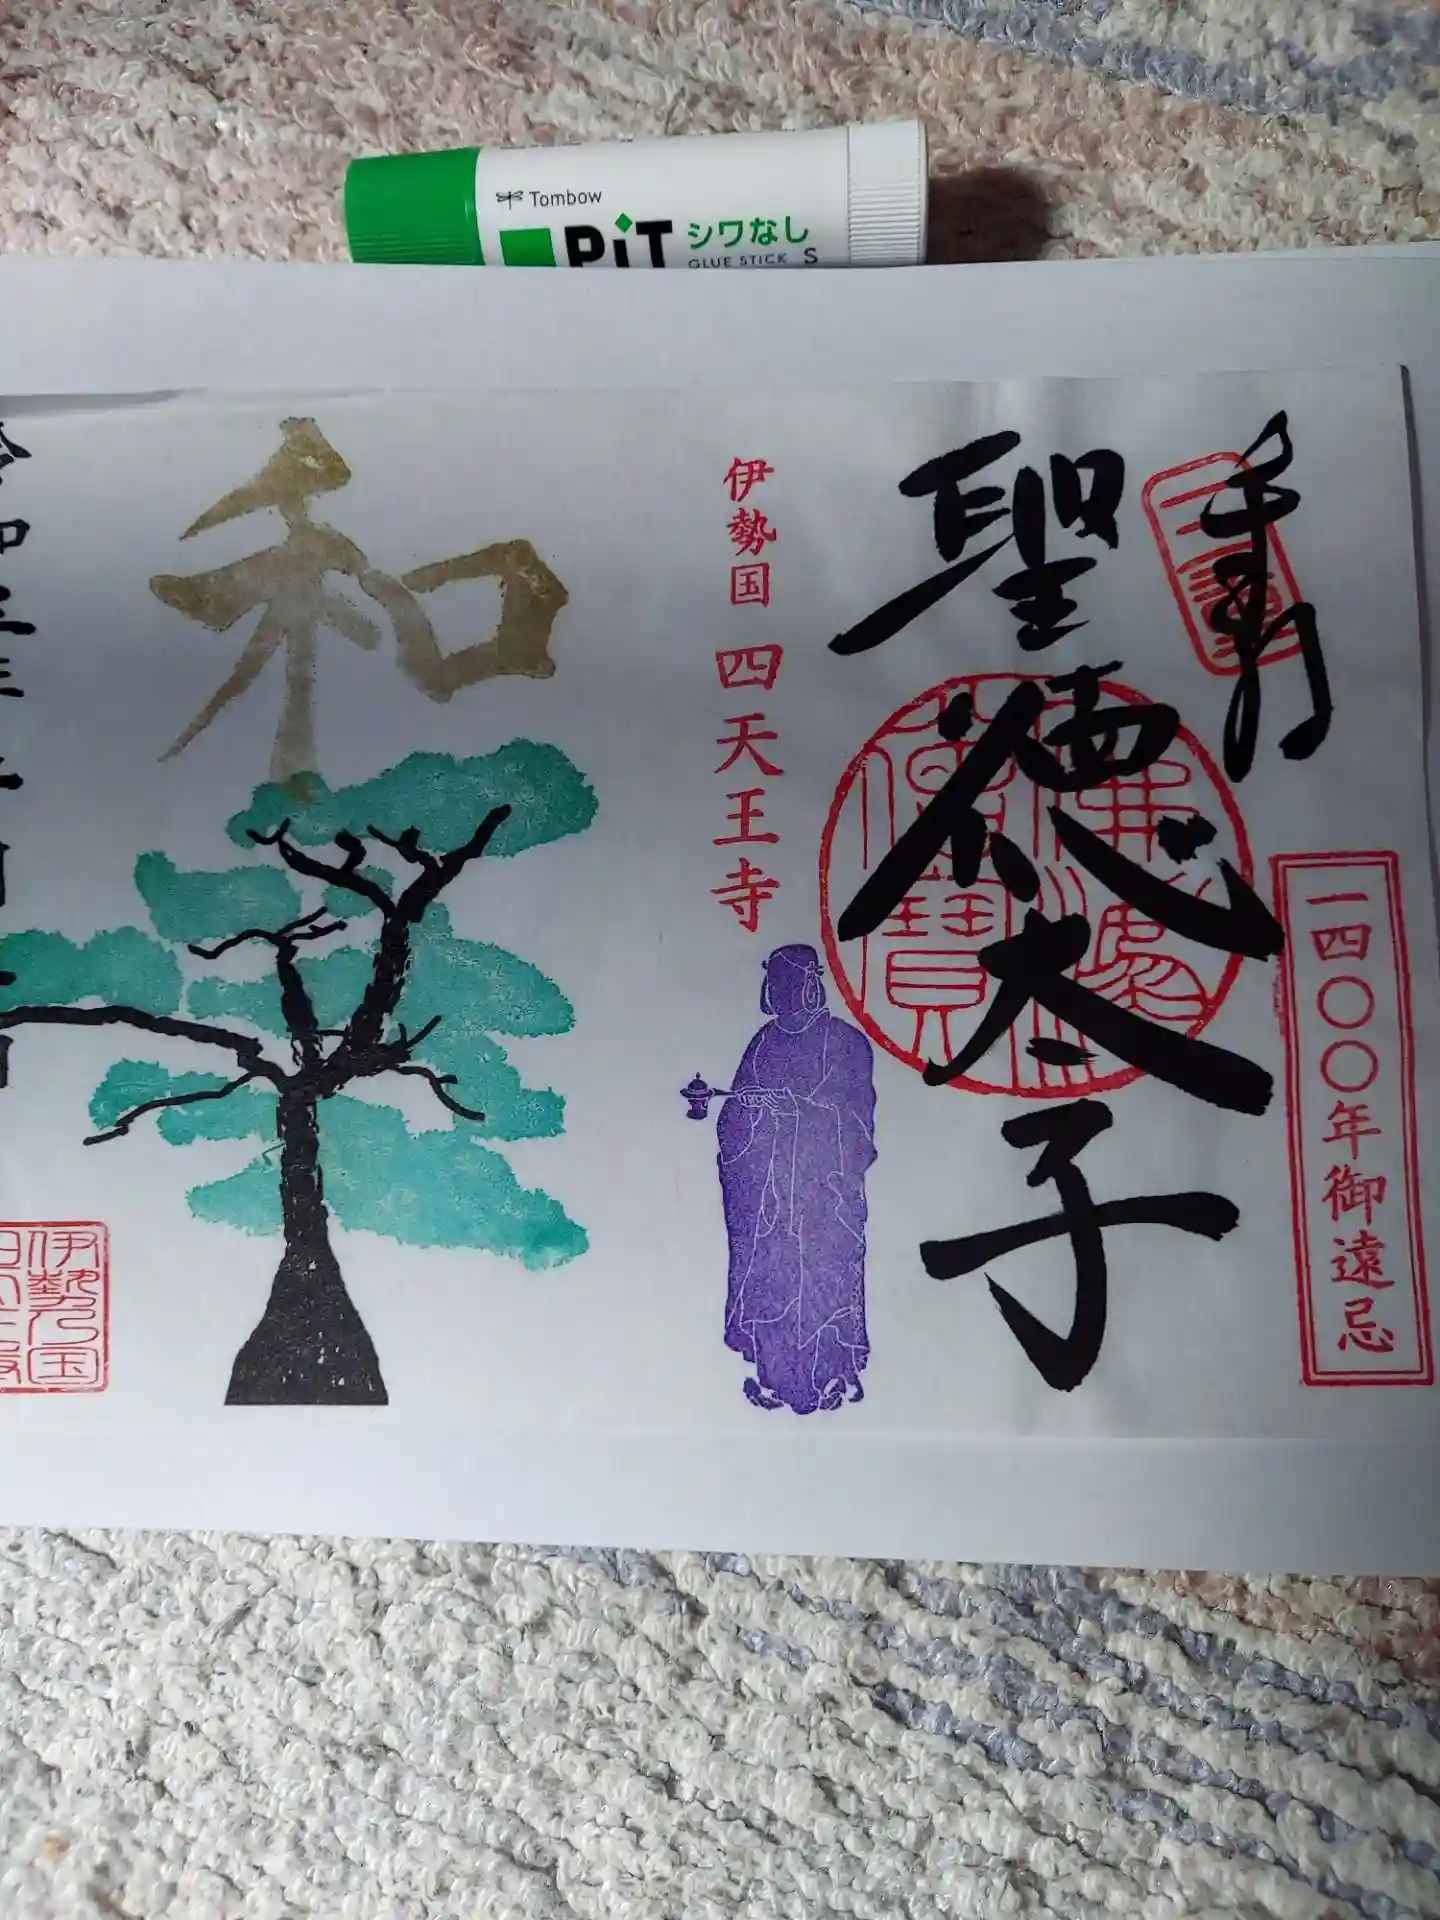 Tombow
PiT シワなし
GLUE STICK S
奉拝
聖徳太子
一四〇〇年御遠忌
佛法僧寶
伊勢国 四天王寺
和
伊勢乃国